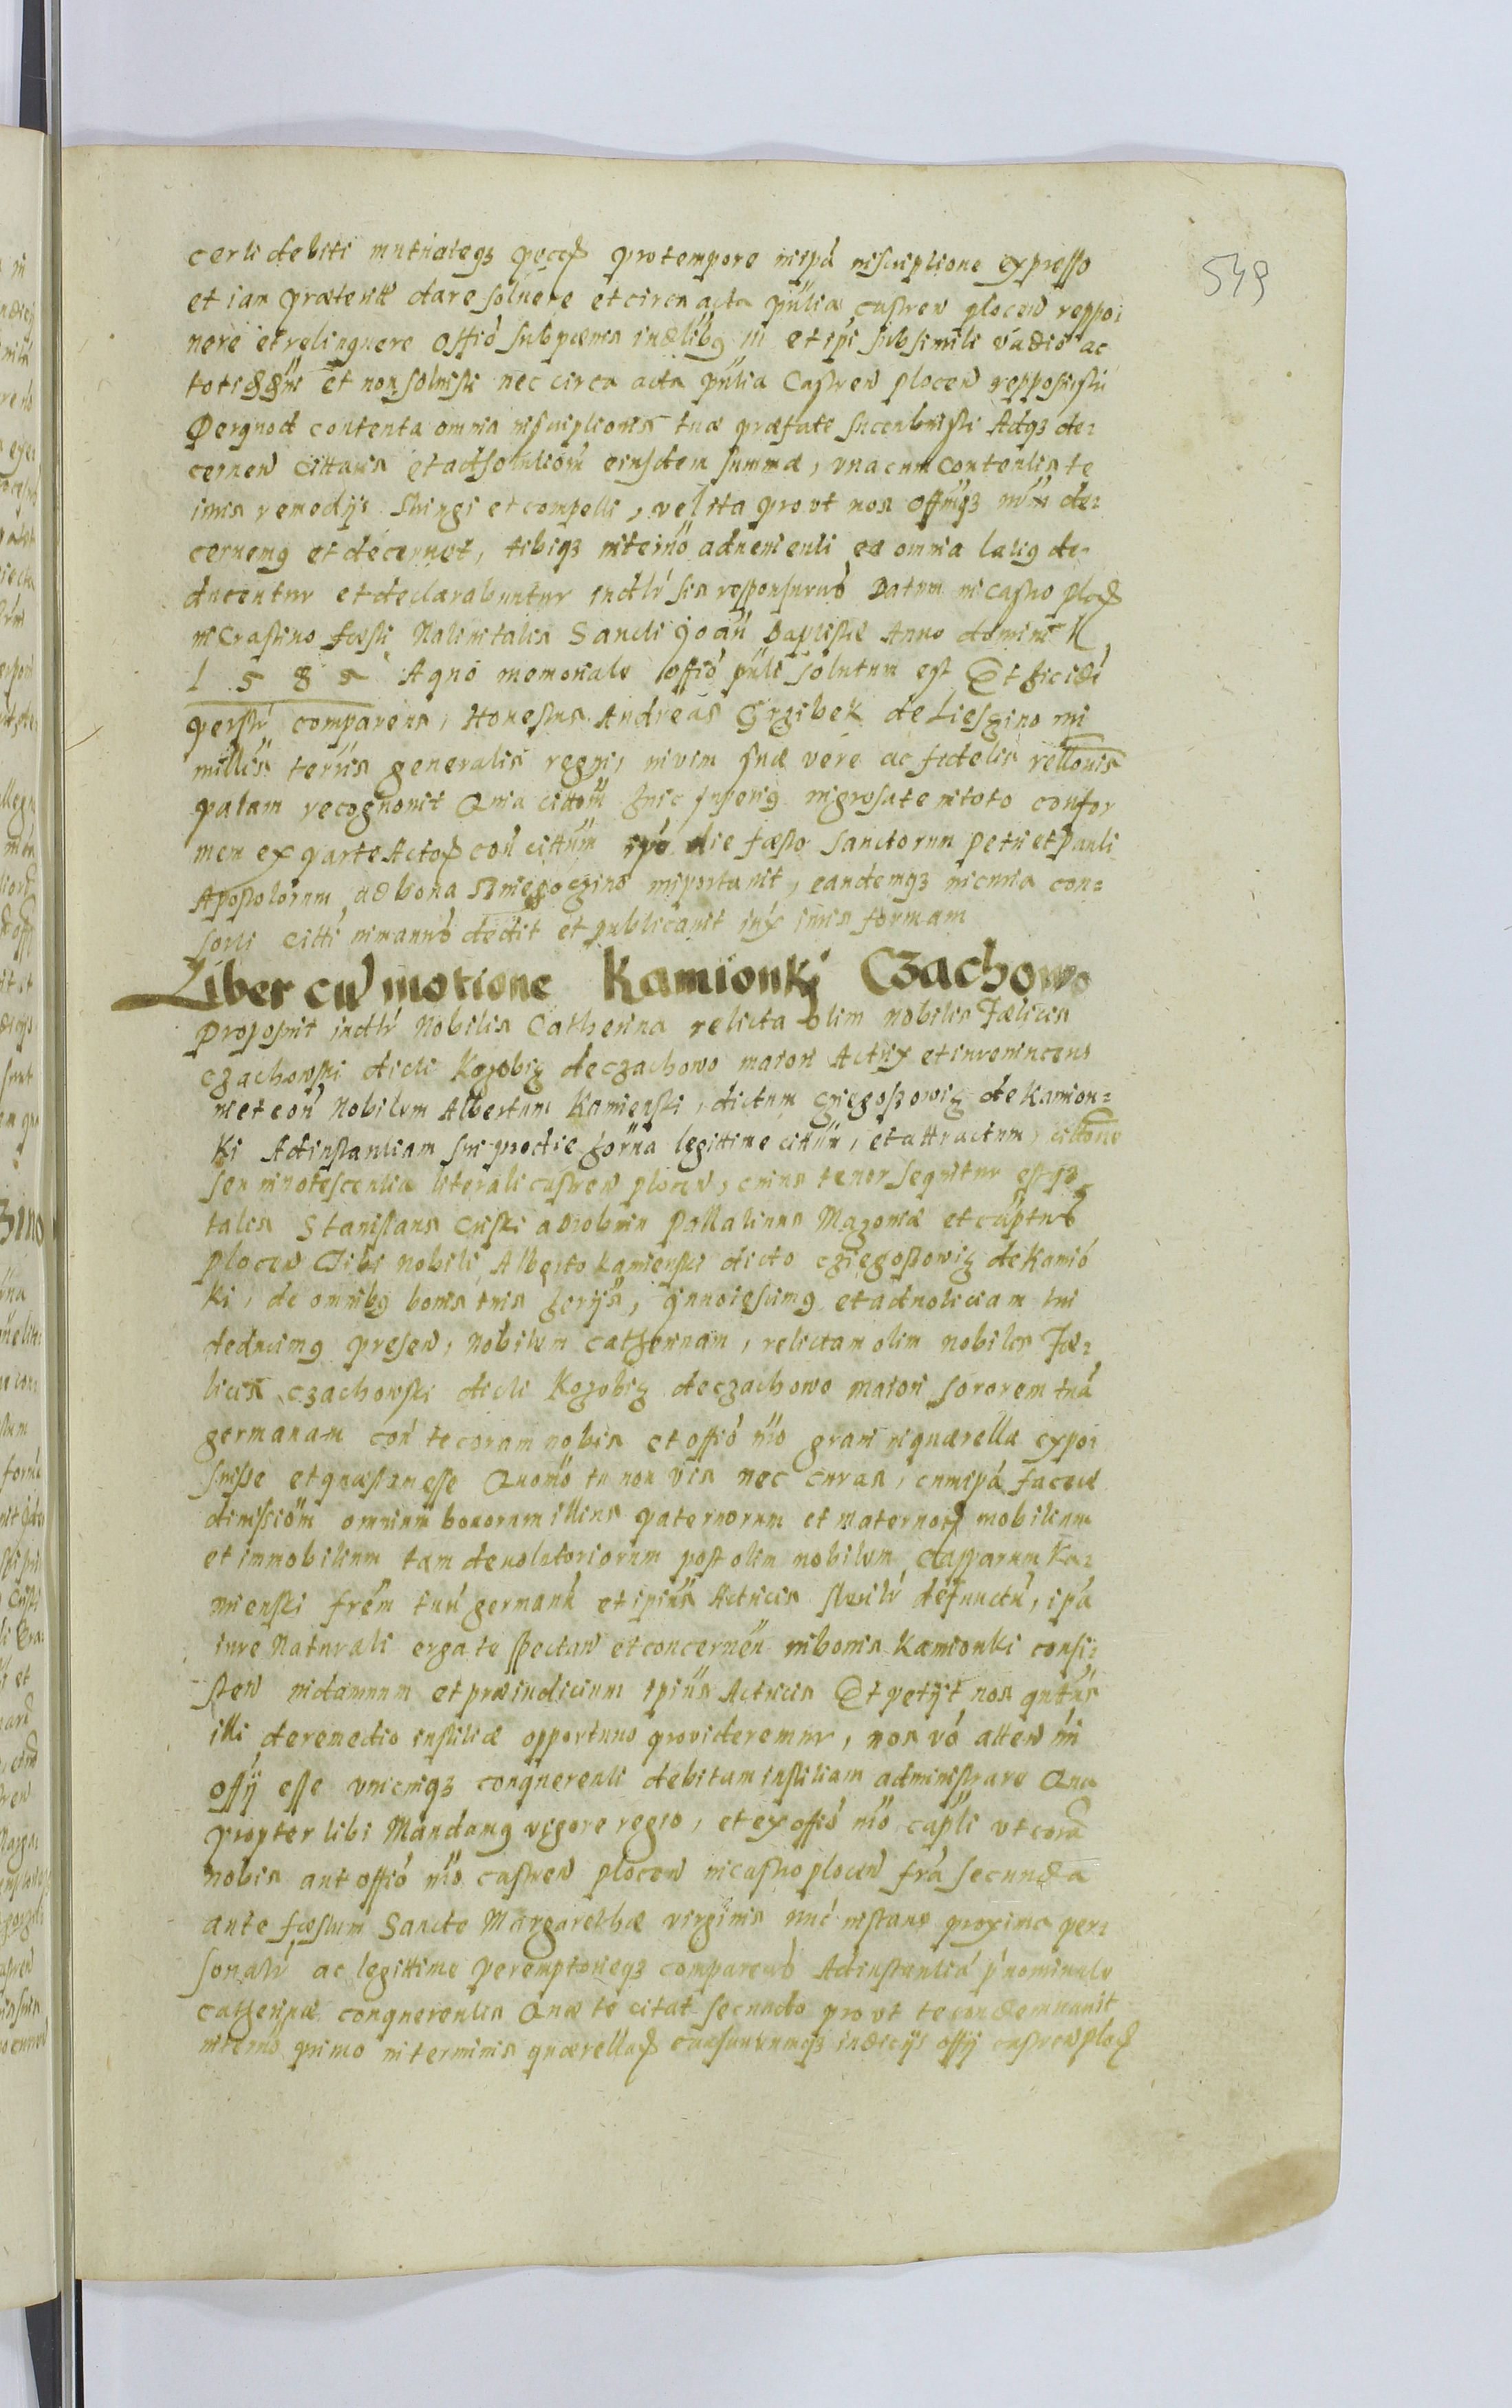 549
certi debiti mutuateq3 pecc pro tempore in ipā inscriptione expresso
et iam præterite dare soluere et circa acta pūlia castren plocen reppoi
nere et relinquere Offiō sub pœnis indlibg in et ipi sub simili vadio ac
et non soluisti nec circa acta pūlia Castren plocen repposuisti
Per quod contenta omnia inscriptionis tuæ præfate sucenbuisti Adq3 de=
cernen cittatis et ad solutiom eiusdem summæ, vna cum contentis te
iuris remedijs stringi et compelli, vel ita pro vt nos Offūq3 nrm de=
cernemg et decernet, tibiq3 in teriō aduenienti ea omnia latig de=
ducentur et declarabuntur indlr sis responsurus Datum in Castro ploc
in Crastino fœsti Natiuitatis Sancti Joan Baptistæ Anno domini M
1 5 8 5 A quo memoriale offiō pūli solutum est Et hic idē
perstr comparens, Honestus Andreas Grzibek de Lieszino mi
nillis terris generalis regni, in vim suæ vere ac fidelis rellonis
palam recognouit Quia cittom huic superig ingrosate in toto confor
mem ex parte Actoᵽ con cittum ipo die fæsto Sanctorum Petri et Pauli
Apostolorum ad bona Sniegoczino importauit, eandemq3 in curia con=
sorti citti in manus dedit et publicauit iux iuris formam
Liber cū motione Kamionki Czachowo
Proposuit indlr Nobilis Catherina relicta olim nobilis Fælicis
Czachowski dicti Kozobig de Czachowo maiori Actrix et in reniucens
in et con Nobilem Albertum Kamienski, dictum Cziegoszowig de Kamion=
ki Ad instantiam sui pro die horna legittime cittum, et attractum, cittone
seu innotescentia literali castren plocen, cuius tenor sequitur est q3
talis Stanislaus Criski a Drobnin Pallatinus Mazouiæ et cāptnus
plocen Tibi nobili Alberto Kamienski dicto Cziegostowig de Kamiō
ki, de omnibg bonis tuis herijs, innotescimg et ad noticiam tui
deducimg presen, Nobilem Catherinam, relictam olim nobiles Fæ=
licis Czachowski dicti Kozobig de Czachowo maiori Sororem tuā
germanam con te coram nobis et offiō nrō graui in quærella expoi
suisse et quæstam esse Quomō tu non vis nec curas, cum ipā facere
diuissiōm omnium bonorum illius paternorum et maternoᵽ mobilium
et immobilium tam deuolutoriorum post olim nobilem Casparum Ka=
mienski frēm tuū germanū et ipius Actricis sterilr defunctū, ipā
iure Naturali erga te spectan et concernēn in bonis Kamionki consi=
sten in damnum et præiudicium ipius Actricis Et petijt nos qutnus
illi de remedio iustitiæ opportuno prouideremur, nos vō atten nri
offij esse vnicuiq3 conquerenti debitam iustitiam administrare Qua
propter tibi Mandamg vigore regio, et ex offiō nrō capli vt corā
nobis aut offiō nrō castren plocen in castro plocen fra secunda
ante fæstum Sancte Margarethæ virginis nuc instans proxime per=
sonalr ac legittime peremptorieq3 comparens Ad instantiā pnominate
Catherinæ conquerentis Quæ te citat secundo pro vt te condemnauit
in termō primo in terminis quærellaᵽ causarumq3 iudicijs offij castren ploc